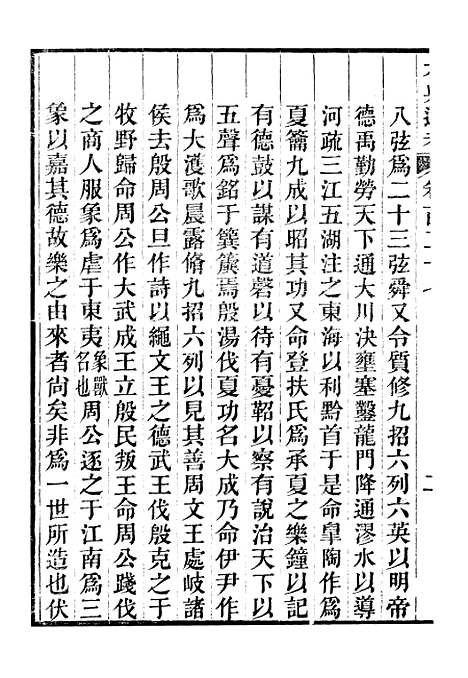 八弦爲二十三弦舜又令質修九招六列六英以明帝
德禹勤勞天下通大川決壅塞鑿龍門降通漻水以導
河疏三江五湖注之東海以利黔首于是命臯陶作爲
夏籥九成以昭其功又命登扶氏爲承夏之樂鐘以記
有德鼓以謀有道磬以待有憂鞀以察有說治天下以
五聲爲銘于簨簴焉殷湯伐夏功名大成乃命伊尹作
爲大濩歌晨露脩九招六列以見其善周文王處岐諸
侯去殷周公旦作詩以繩文王之德武王伐殷克之于
牧野歸命周公作大武成王立殷民叛王命周公踐伐
之商人服象爲虐于東夷象獸名也周公逐之于江南爲三
象以嘉其德故樂之由來者尚矣非爲一世所造也伏